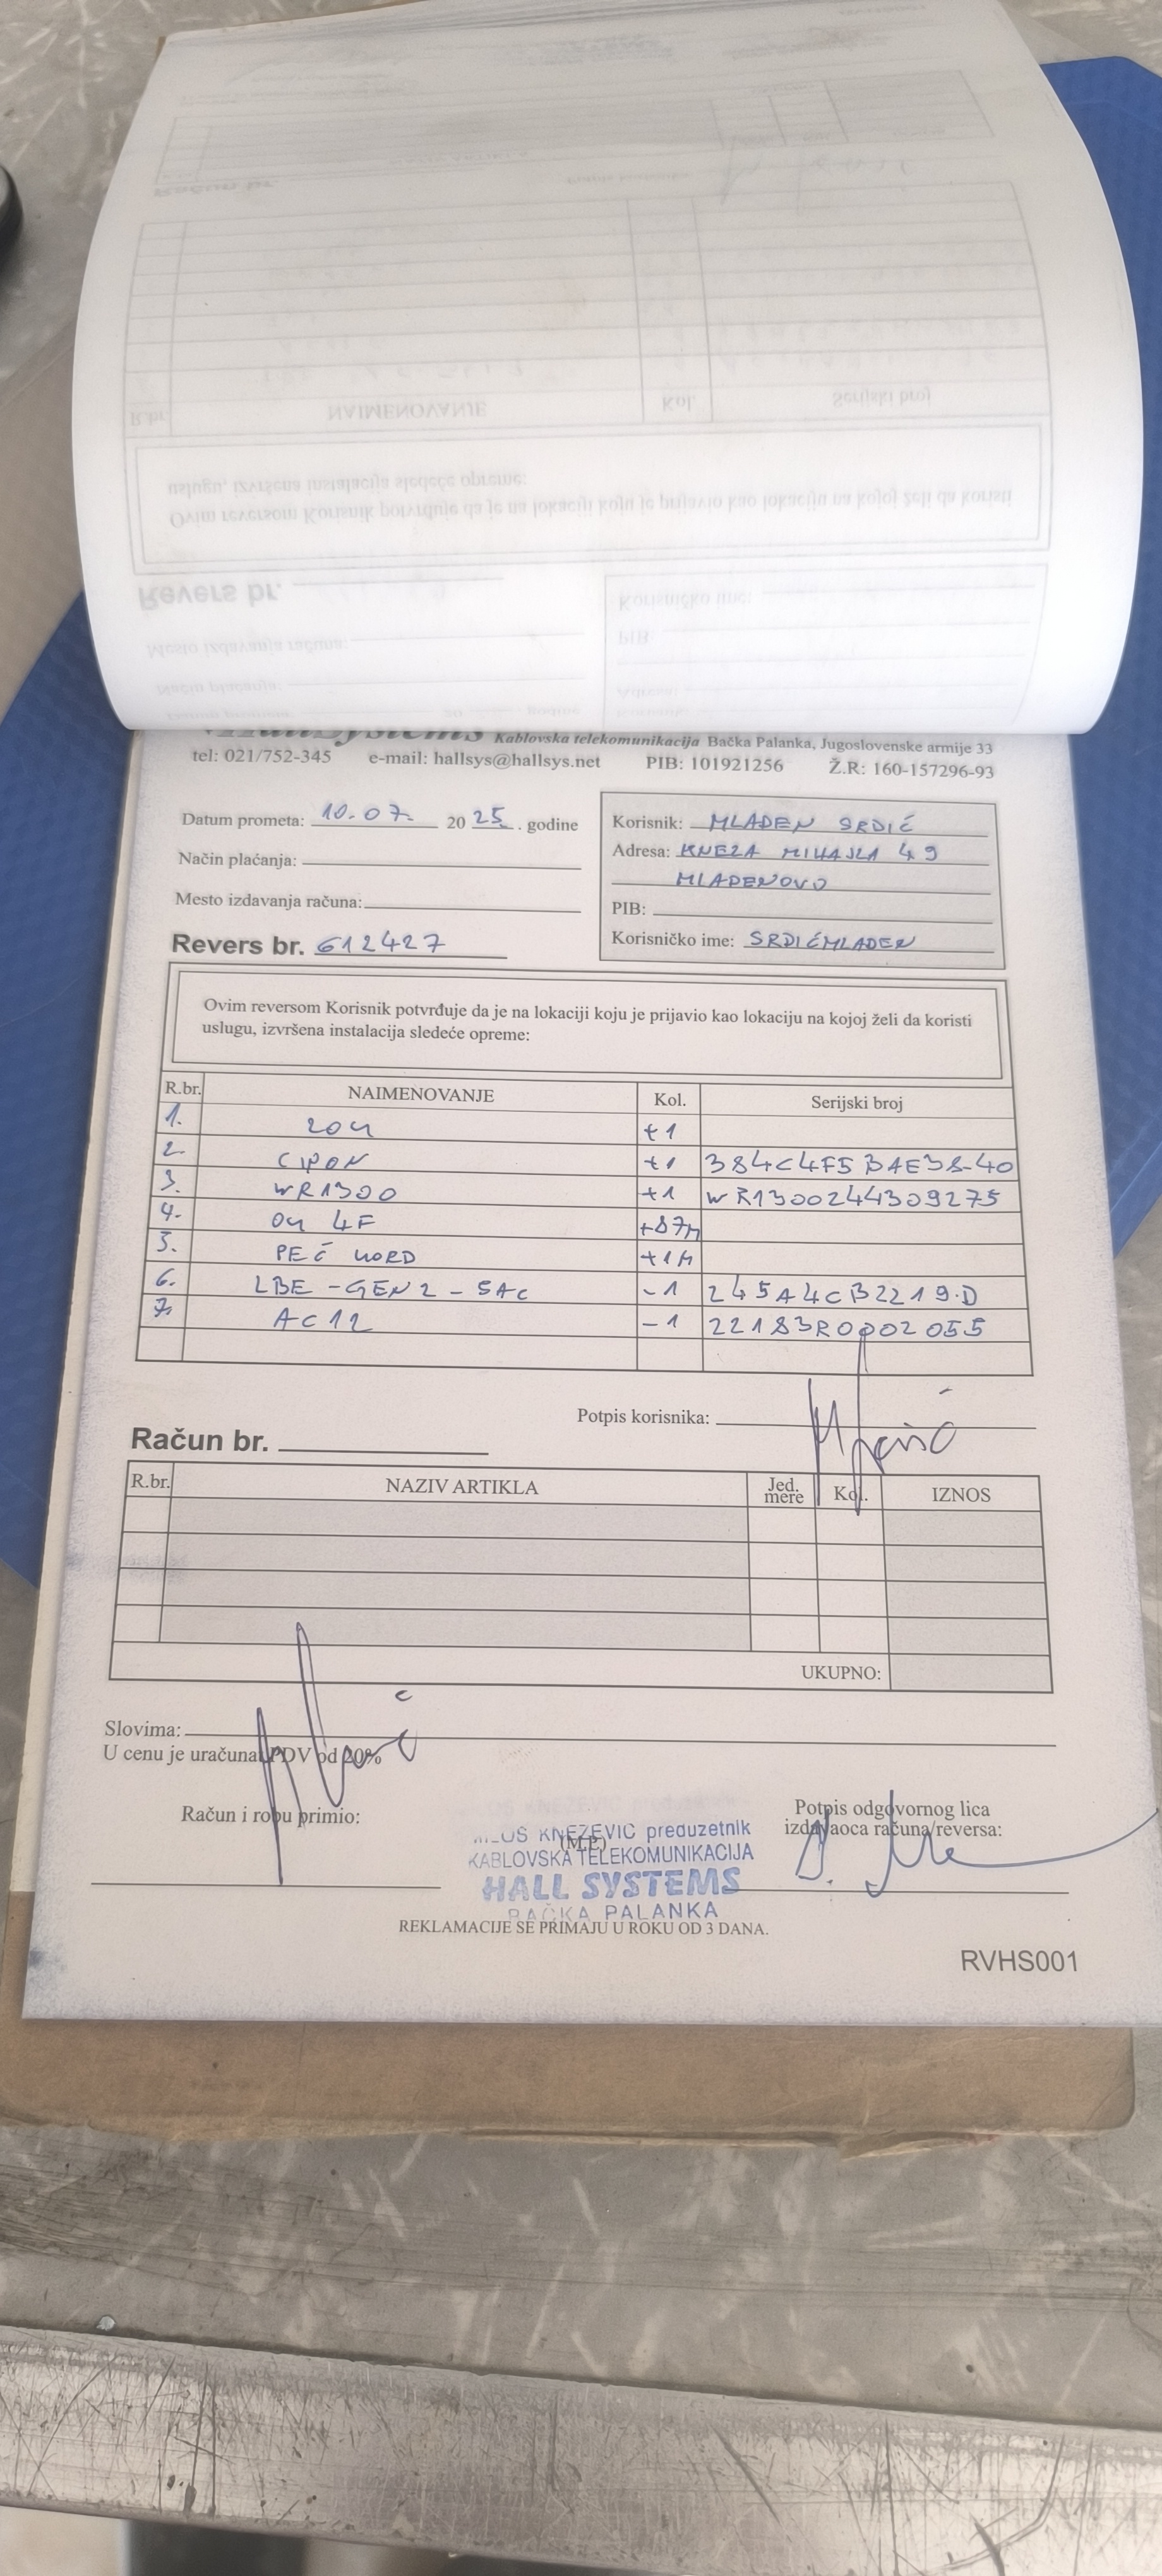 HallSystems Kablovska telekomunikacija Bačka Palanka, Jugoslovenske armije 33
tel: 021/752-345 e-mail: hallsys@hallsys.net PIB: 101921256 Ž.R: 160-157296-93
Datum prometa: 10.07. 2025. godine
Način plaćanja:
Mesto izdavanja računa:
Revers br. 612427
Korisnik: MLADEN SRDIĆ
Adresa: KNEZA MIHAJLA 49
MLADENOVO
PIB:
Korisničko ime: SRDIĆMLADEN
Ovim reversom Korisnik potvrđuje da je na lokaciji koju je prijavio kao lokaciju na kojoj želi da koristi
uslugu, izvršena instalacija sledeće opreme:
R.br. NAIMENOVANJE Kol. Serijski broj
1. +1
2. +1
3. WR1300 +1 WR1300244309275
4. +87m
5. +1
6. LBE-GEN2-5AC -1 245A4CB2219.D
7. AC12 -1
Potpis korisnika:
Račun br.
R.br. NAZIV ARTIKLA Jed. mere Kol. IZNOS
UKUPNO:
Slovima:
U cenu je uračunat PDV od 20%
Račun i robu primio:
(M.P.)
Potpis odgovornog lica
izdavaoca računa/reversa:
KNEZEVIC preduzetnik
KABLOVSKA TELEKOMUNIKACIJA
HALL SYSTEMS
BAČKA PALANKA
REKLAMACIJE SE PRIMAJU U ROKU OD 3 DANA.
RVHS001